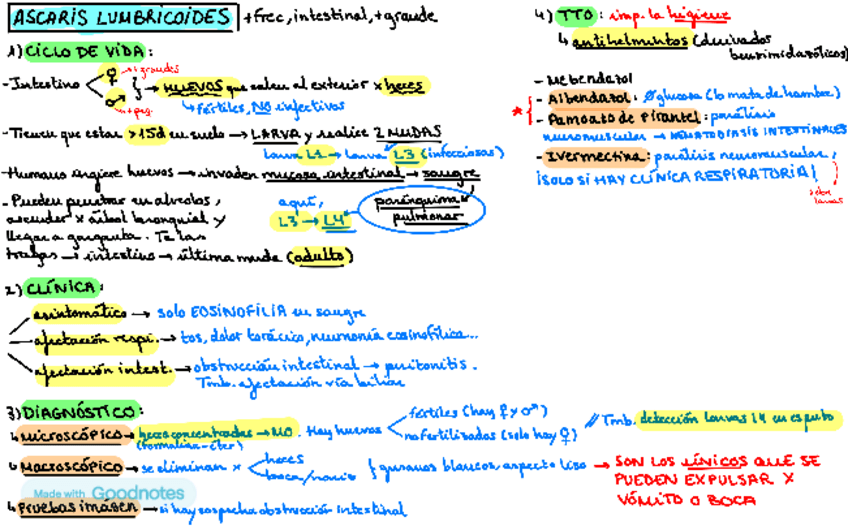 ASCARIS LUMBRICOIDES +frec, intestinal, +grande
1) CICLO DE VIDA:
- Intestino ♀ → + grandes
♂ → + peq. } → HUEVOS que salen al exterior x heces
↳ fértiles, NO infectivos
- Tienen que estar >15d en suelo → LARVA y realice 2 MUDAS
larva L1 → larva L3 (infecciosas)
- Humano ingiere huevos → invaden mucosa intestinal → sangre
- Pueden penetrar en alveolos,
ascender x árbol bronquial y
llegar a garganta. Te las
tragas → intestino → última muda (adulto)
aquí,
L3 → L4
parénquima
pulmonar
2) CLÍNICA:
asintomático → solo EOSINOFILIA en sangre
afectación respi. → tos, dolor torácico, neumonía eosinofílica...
afectación intest. → obstrucción intestinal → peritonitis.
Tmb. afectación vía biliar
3) DIAGNÓSTICO:
↳ MICROSCÓPICO → heces concentradas → MO. Hay huevos
(formalina-éter)
fértiles (hay ♀ y ♂)
no fertilizados (solo hay ♀)
// Tmb. detección larvas L4 en esputo
↳ MACROSCÓPICO → se eliminan x
heces
boca/nariz } gusanos blancos, aspecto liso → SON LOS ÚNICOS QUE SE
PUEDEN EXPULSAR X
VÓMITO O BOCA
Made with Goodnotes
↳ PRUEBAS IMÁGEN → si hay sospecha obstrucción intestinal
4) TTO: imp. la higiene
↳ antihelmintos (derivados
bencimidazólicos)
- Mebendazol
* { - Albendazol: Ø glucosa (lo mata de hambre)
- Pamoato de Pirantel: parálisis
neuromuscular → NEMATODIASIS INTESTINALES
- Ivermectina: parálisis neuromuscular,
¡SOLO SI HAY CLÍNICA RESPIRATORIA!
sobre
larvas